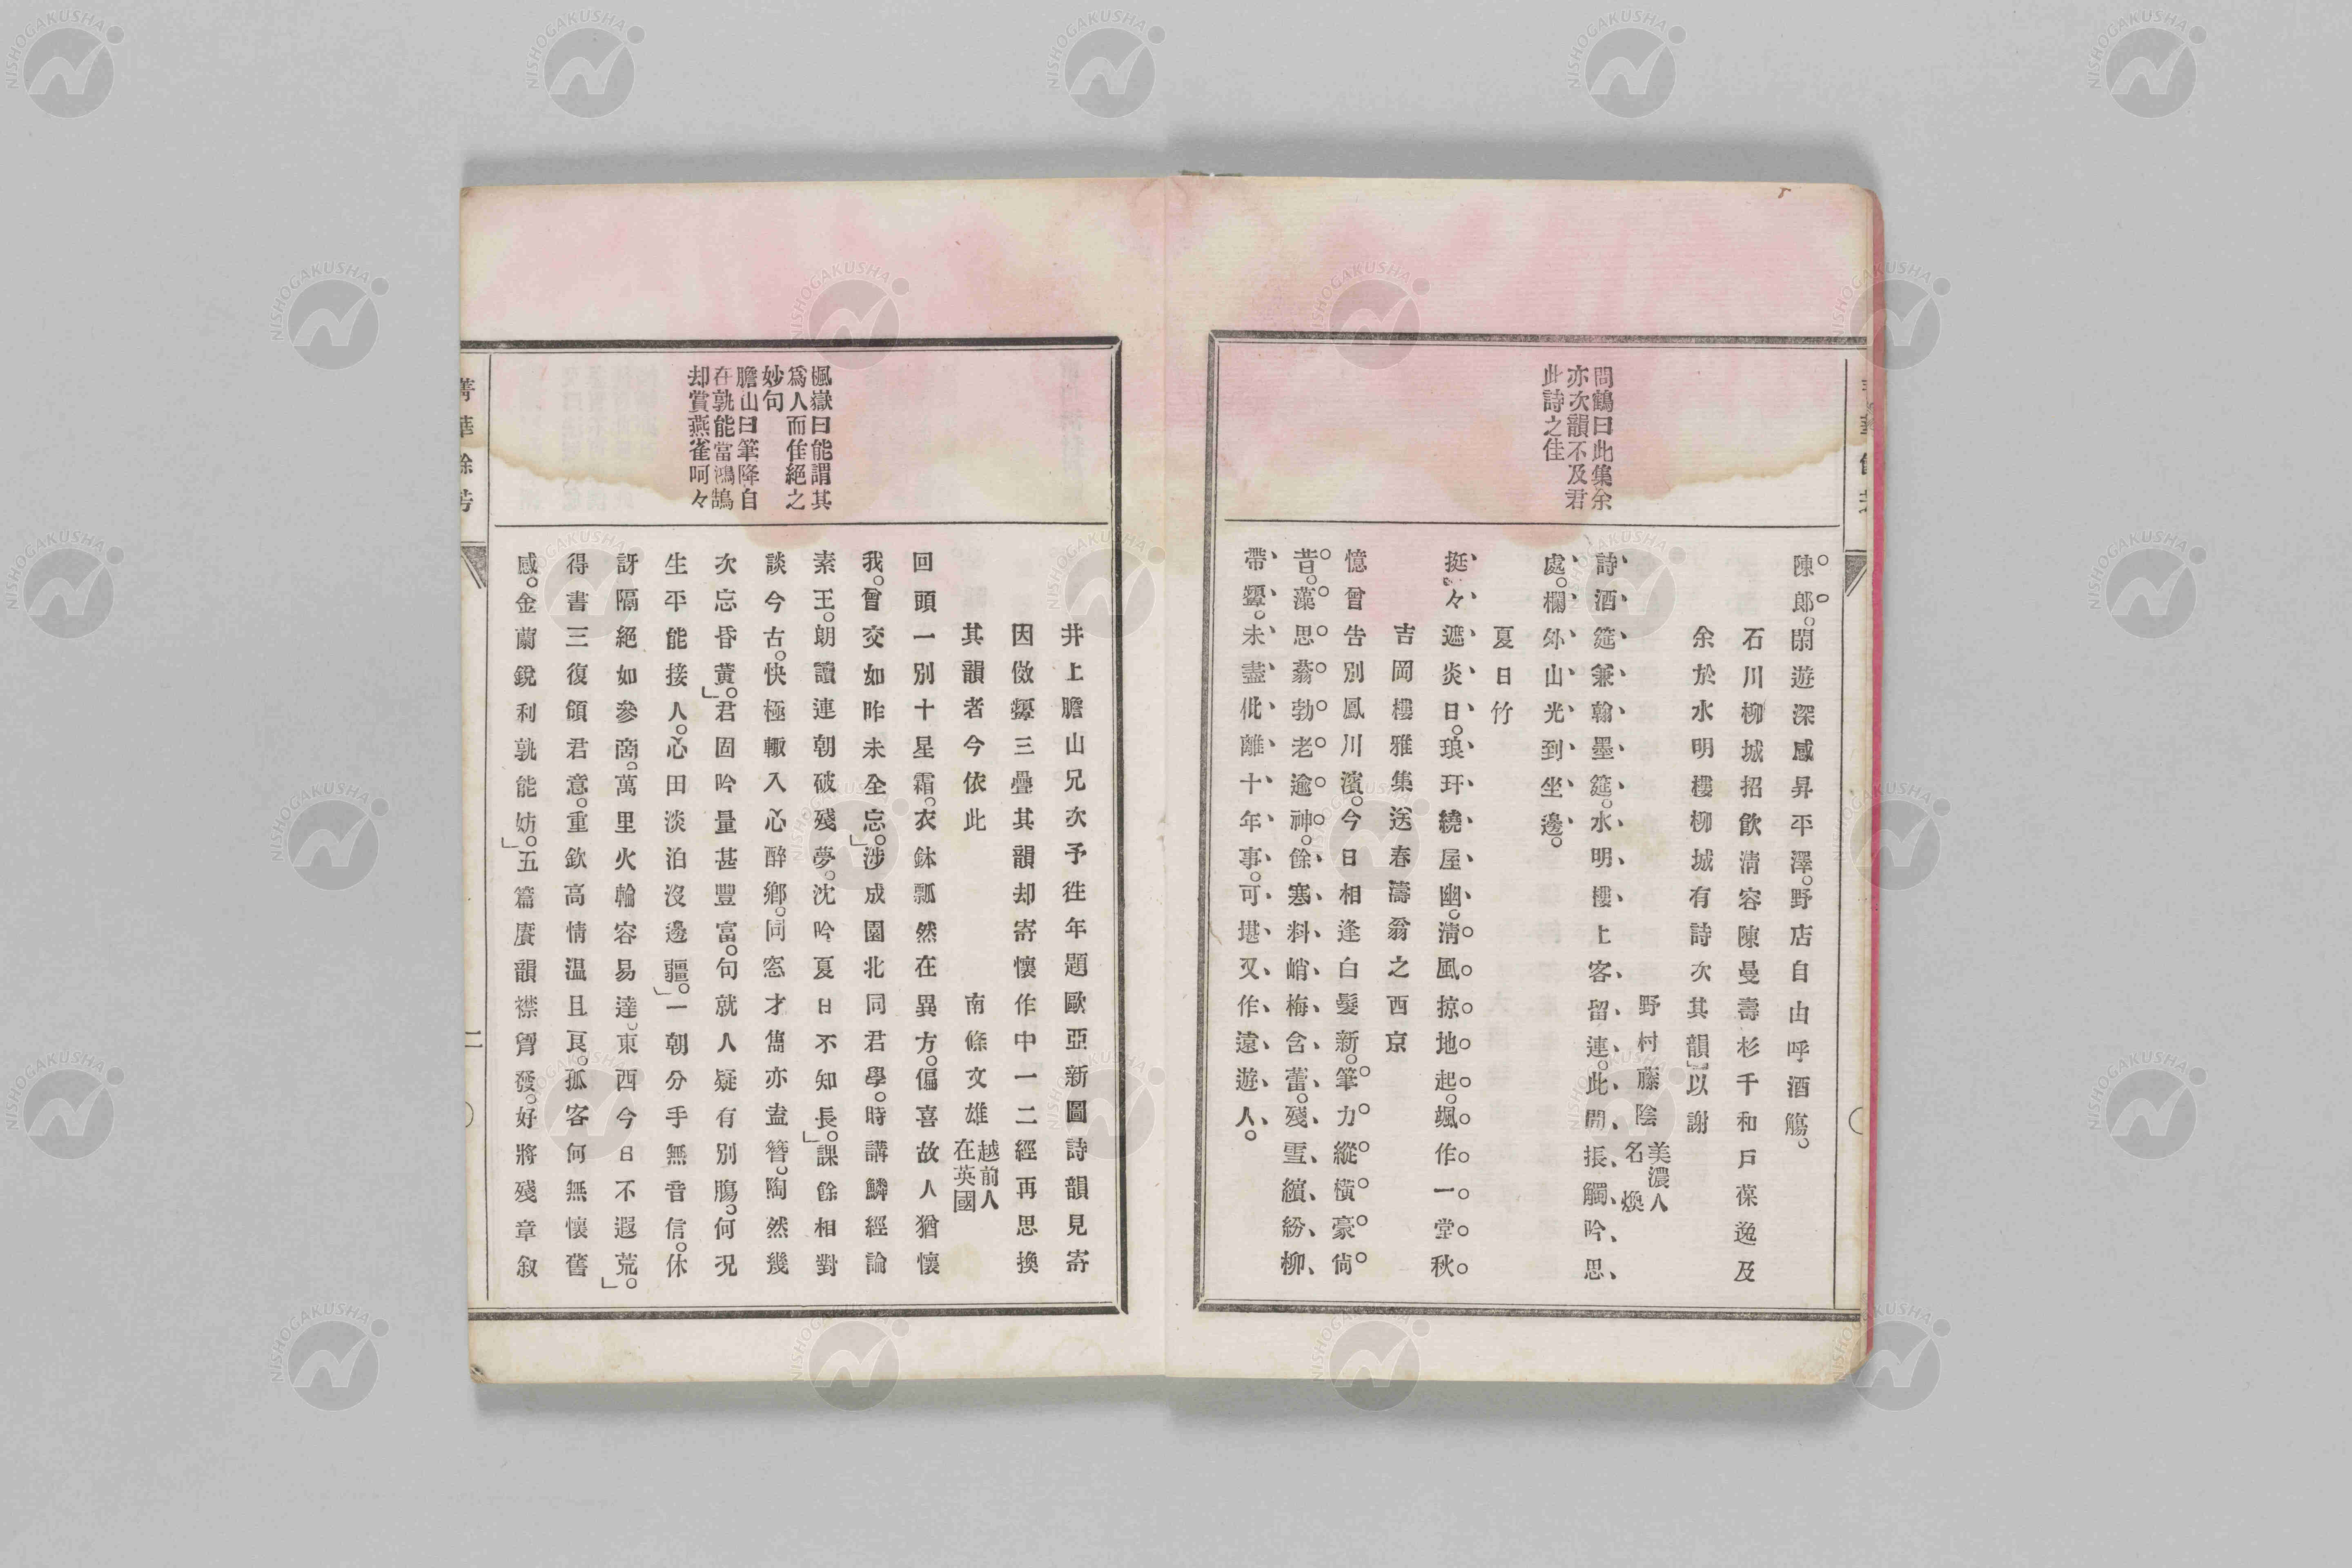 問鶴曰此集余
亦次韻不及君
此詩之佳
陳郎。閑遊深感昇平澤。野店自由呼酒觴。
石川柳城招飮淸容陳曼壽杉千和戸葆逸及
余於水明樓柳城有詩次其韻以謝
野村藤陰 美濃人
名 煥
詩酒筵兼翰墨筵。水明樓上客留連。此間振觸吟思
處。欄外山光到坐邊。
夏日竹
挺々遮炎日。琅玕繞屋幽。淸風掠地起。颯作一堂秋。
吉岡樓雅集送春濤翁之西京
憶曾告別鳳川濱。今日相逢白髮新。筆力縱橫豪尙
昔。藻思蓊勃老逾神。餘寒料峭梅含蕾。殘雪繽紛柳
帶顰。未盡仳離十年事。可堪又作遠遊人。
楓嶽曰能謂其
爲人而隹絕之
妙句
膽山曰筆降自
在孰能當鴻鵠
却賞燕雀呵々
井上膽山兄次予往年題歐亞新圖詩韻見寄
因倣顰三疊其韻却寄懷作中一二經再思換
其韻者今依此
南條文雄 越前人
在英國
回頭一別十星霜。衣鉢瓢然在異方。偏喜故人猶懷
我。曾交如昨未全忘。」涉成園北同君學。時講鱗經論
素王。朗讀連朝破殘夢。沈吟夏日不知長。」課餘相對
談今古。快極輙入心醉鄕。同窓才儁亦盍簪。陶然幾
次忘昏黃。」君固吟量甚豐富。句就人疑有別膓。何況
生平能接人。心田淡泊沒邊疆。」一朝分手無音信。休
訝隔絕如參商。萬里火輪容易達。東西今日不遐荒。」
得書三復領君意。重欽高情温且良。孤客何無懷舊
感。金蘭銳利孰能妨。」五篇賡韻襟胷發。好將殘章叙
菁華餘芳
二
NISHOGAKUSHA